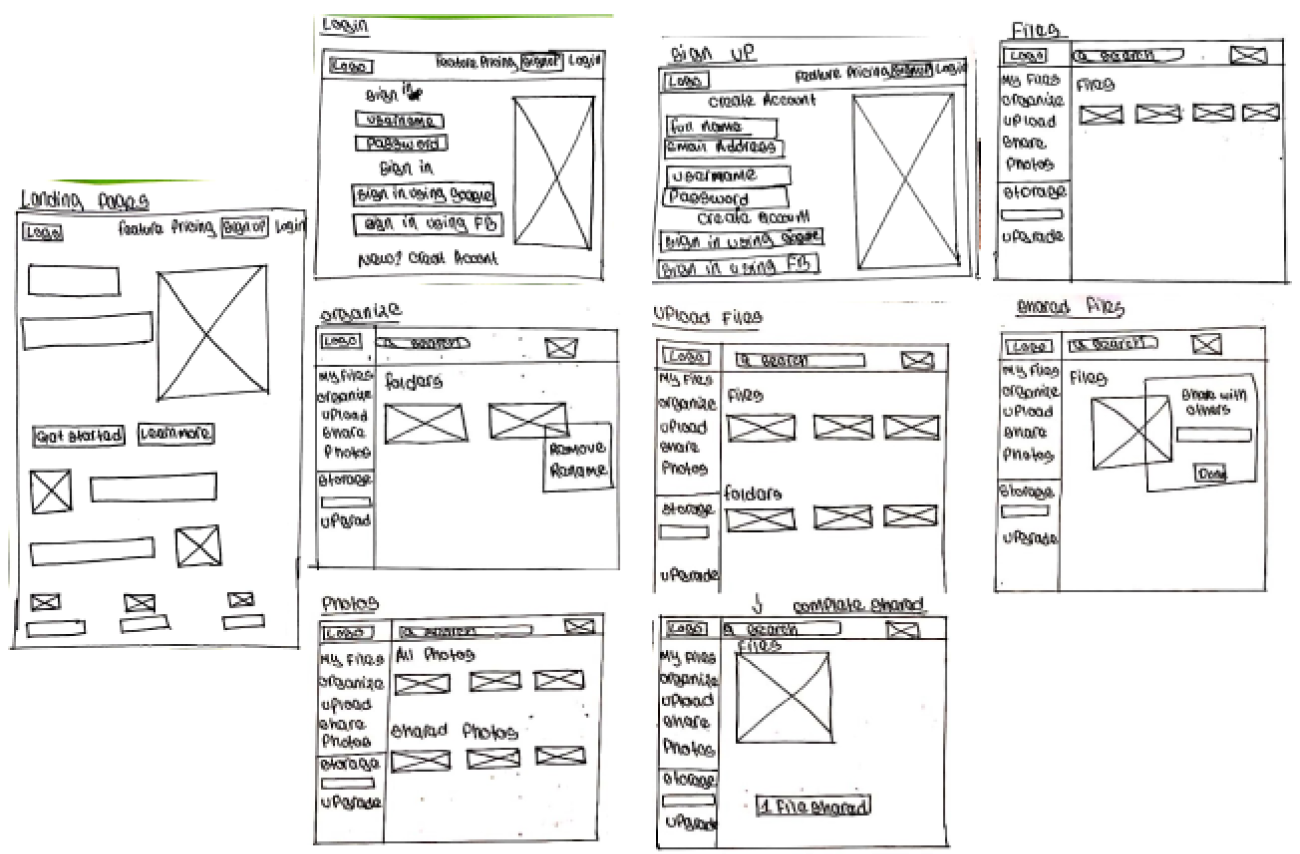 Landing Pages
Logo
Feature Pricing Signup Login
Get Started
Learn more
Login
Logo
Feature Pricing Signup Login
Sign in
username
Password
Sign in
Sign in using Google
Sign in using FB
New? Creat Account
Sign UP
Logo
Feature Pricing Signup Login
Create Account
full name
Email Address
username
Password
Create Account
Sign in using Google
Sign in using FB
Files
Logo
Search
My Files
organize
upload
Share
Photos
Storage
upgrade
Files
organize
Logo
Search
My Files
organize
upload
Share
Photos
Storage
upgrad
folders
Remove
Rename
Upload Files
Logo
Search
My Files
organize
upload
Share
Photos
Storage
upgrade
Files
folders
Shared Files
Logo
Search
My Files
organize
upload
Share
Photos
Storage
upgrade
Files
Share with
others
Done
Photos
Logo
Search
My Files
organize
upload
Share
Photos
Storage
upgrade
All Photos
Shared Photos
Complete Shared
Logo
Search
My Files
organize
upload
Share
Photos
Storage
upgrade
Files
1 File Shared